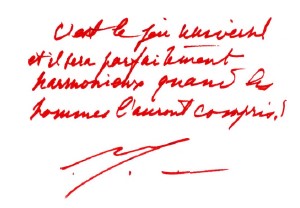 C'est le jeu universel
et il sera parfaitement
harmonieux quand les
hommes l'auront compris.